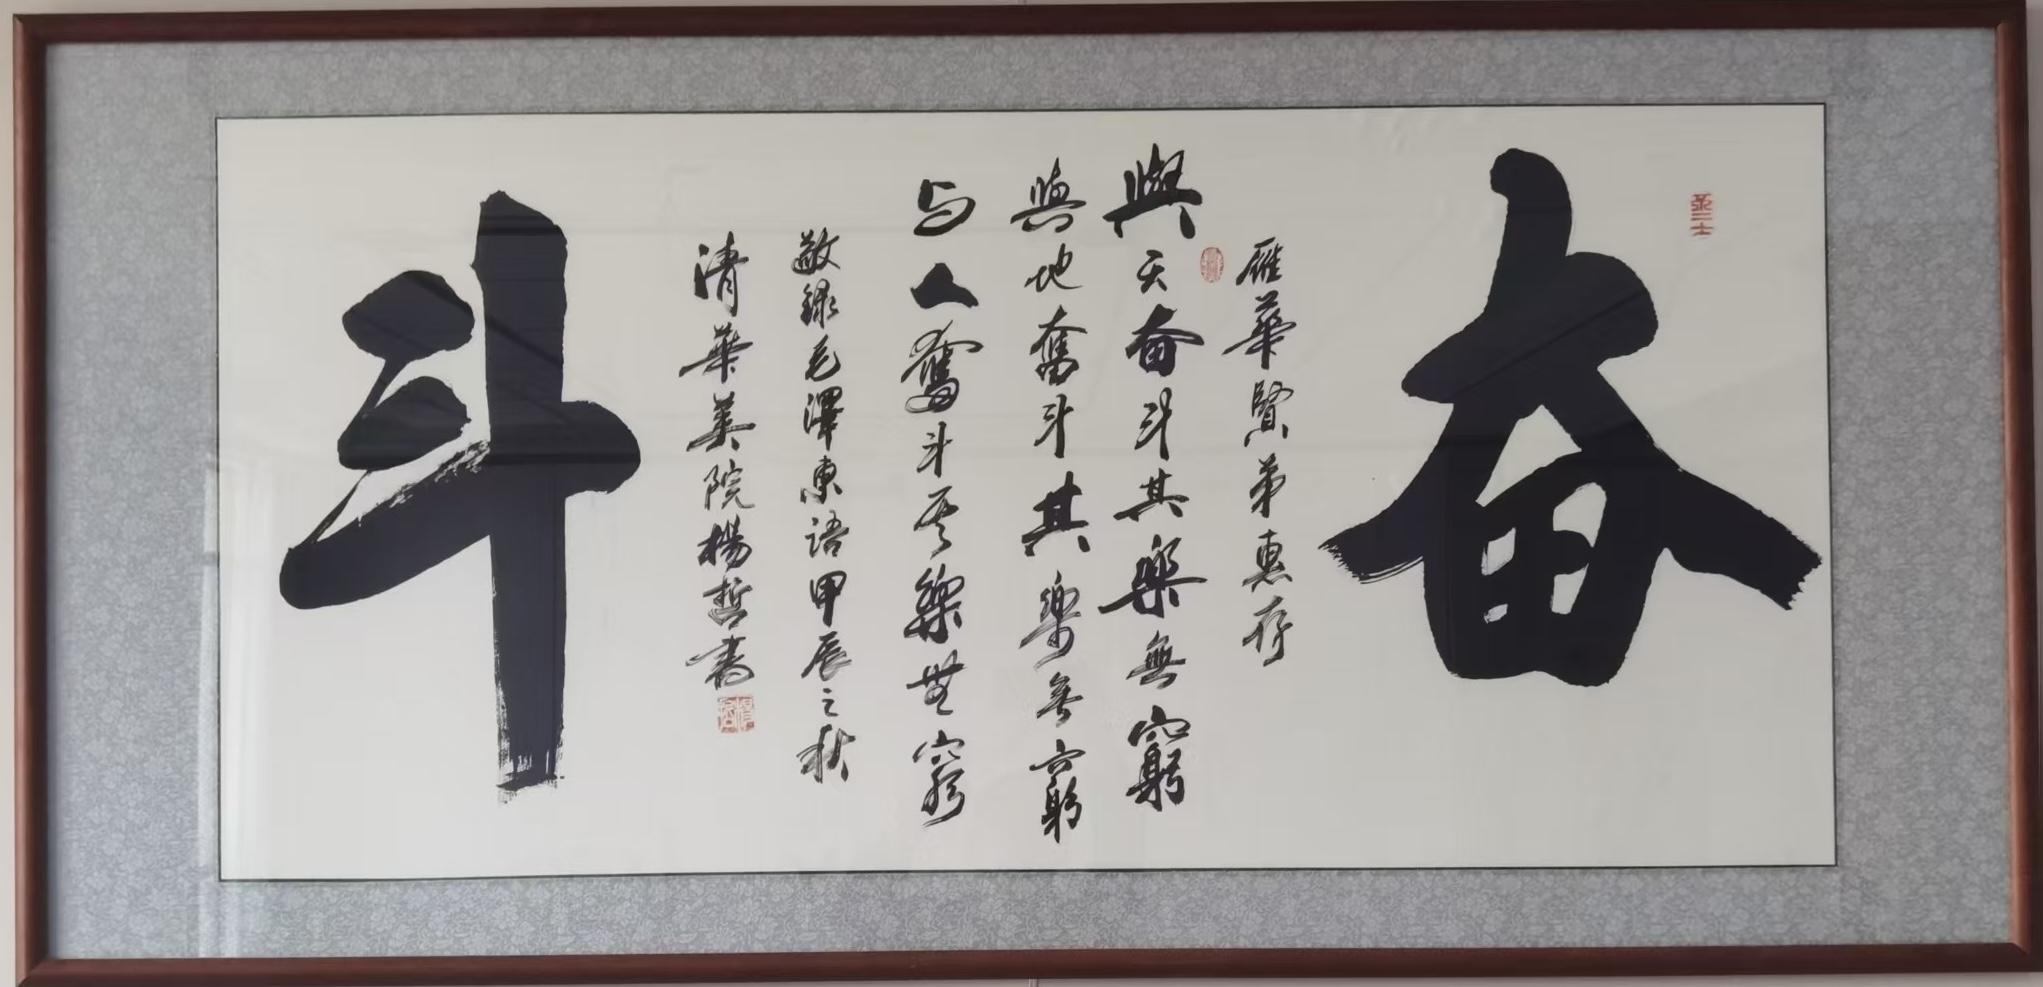 奋
雁華賢弟惠存
與天奋斗其樂無窮
與地奮斗其樂无窮
与人奮斗其樂無窮
敬録毛澤東語甲辰之秋
清華美院楊哲書
斗